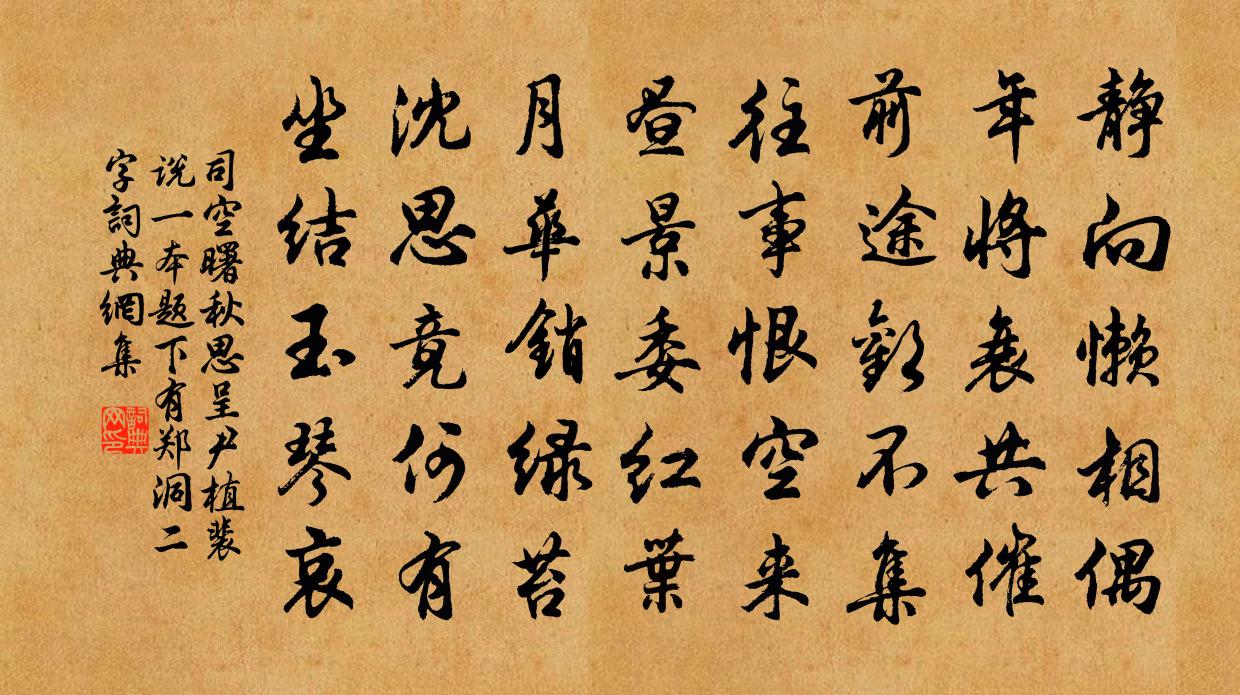 静向懒相偶
年将衰共催
前途欢不集
往事恨空来
昼景委红葉
月華銷绿苔
沈思竟何有
坐结玉琴哀
司空曙秋思呈尹植裴
说一本题下有郑洞二
字詞典網集
詞典
网印